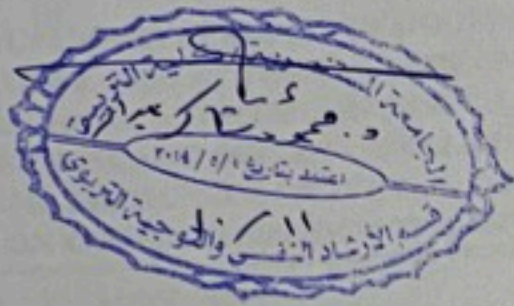 الجامعة المستنصرية / كلية التربية
د. محمود شاكر عبد الرزاق
اعتمد بتاريخ ١ / ٥ / ٢٠١٤
قسم الارشاد النفسي والتوجيه التربوي